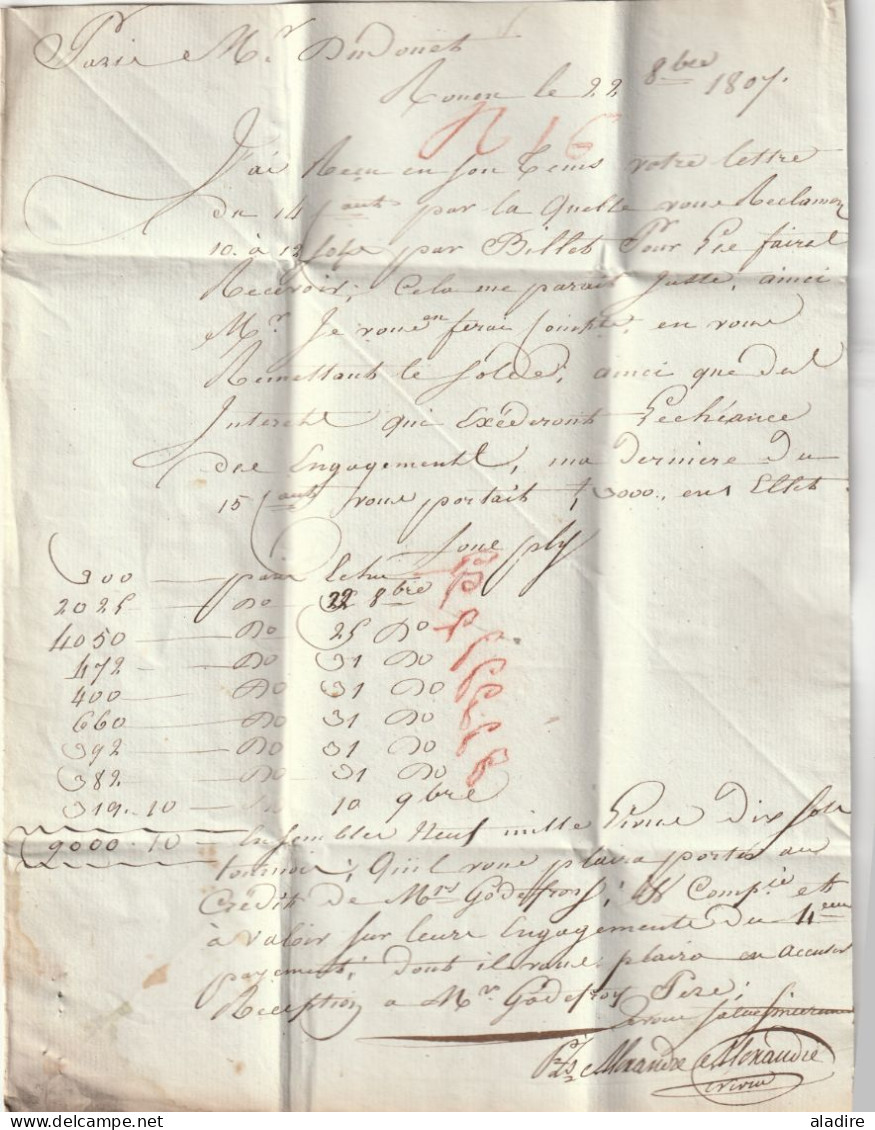 Paris M.r Dudouet
Rouen le 22 8bre 1807.
N 16
J'ai Reçu en son tems votre lettre
du 14 Cant par la Quelle vous Reclamez
10. à 12 sols par Billet Pr vous les faires
Recevoir; Cela me parait juste, ainci
M.r Je vous en ferai Compte, en vous
Remettant le solde, ainci que des
Interets qui Exéderont L'echéance
des Engagements, ma derniere du
15 Cant vous portait 3000 en Effets
sous ply
300 — paris Echu
2025 — Do 22 8bre
4050 — Do 25 Do
472 — Do 31 Do
400 — Do 31 Do
660 — Do 31 Do
392 — Do 31 Do
382 — Do 31 Do
319.10 — Do 10 9bre
9000.10 — Ensembles Neuf mille Livres Dix sols
tournois; Qu'il vous plaira porter au
Crédit de Mrs Godeffroy; & Compie et
à valoir sur leurs Engagements du 4eme
payement; dont il vous plaira en accuser
Reception a Mr Godefroy Pere;
vous salue sincerement
Alexandre Alexandre